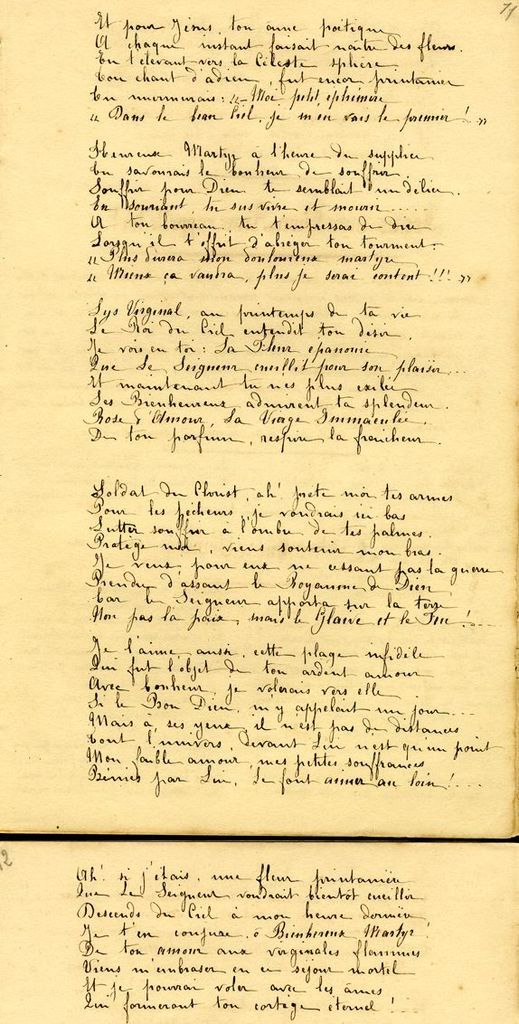 71
Et pour Jésus, ton âme poétique
A chaque instant faisait naître des fleurs.
En t'élevant vers la Céleste sphère
Ton chant d'adieu, fut encor printanier
Tu murmurais : « – Moi petit éphémère
« Dans le beau Ciel, je m'en vais le premier !.. »
Heureux Martyr à l'heure du supplice
Tu savourais le bonheur de souffrir.
Souffrir pour Dieu te semblait un délice.
En souriant, tu sus vivre et mourir.....
A ton bourreau tu t'empressas de dire
Lorsqu'il t'offrit d'abréger ton tourment :
« Plus durera mon douloureux martyre
« Mieux ça vaudra, plus je serai content !!! »
Lys Virginal, au printemps de ta vie
Le Roi du Ciel entendit ton désir,
Je vois en toi : La Fleur épanouie
Que Le Seigneur cueillit pour son plaisir...
Et maintenant tu n'es plus exilée
Les Bienheureux admirent ta splendeur.
Rose d'Amour, La Vierge Immaculée,
De ton parfum, respire la fraîcheur.
Soldat du Christ, ah ! prête moi tes armes
Pour les pécheurs je voudrais ici bas
Lutter souffrir à l'ombre de tes palmes.
Protège moi, viens soutenir mon bras.
Je veux, pour eux ne cessant pas la guerre
Prendre d'assaut le Royaume de Dieu
Car le Seigneur apporta sur la terre
Non pas la paix, mais le Glaive et le Feu !...
Je l'aime aussi, cette plage infidèle
Qui fut l'objet de ton ardent amour
Avec bonheur, je volerais vers elle
Si le Bon Dieu, m'y appelait un jour....
Mais à ses yeux il n'est pas de distances
Tout l'univers, devant Lui n'est qu'un point
Mon faible amour, mes petites souffrances
Bénies par Lui, Le font aimer au loin !....
Ah ! si j'étais, une fleur printanière
Que Le Seigneur voudrait bientôt cueillir
Descends du Ciel à mon heure dernière
Je t'en conjure, ô Bienheureux Martyr !
De ton amour aux virginales flammes
Viens m'embraser en ce séjour mortel
Et je pourrai voler avec les âmes
Qui formeront ton cortège éternel !..